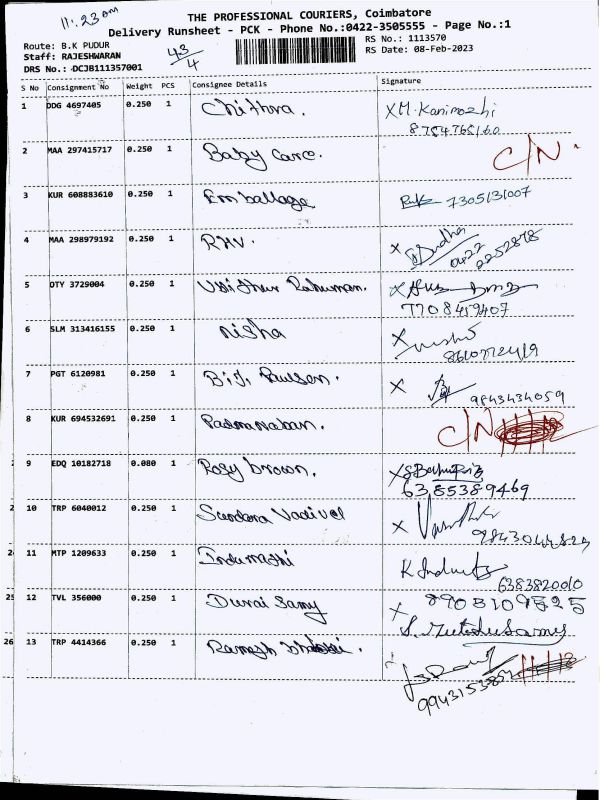 11:23 am
THE PROFESSIONAL COURIERS, Coimbatore
Delivery Runsheet - PCK - Phone No.:0422-3505555 - Page No.:1
Route: B.K PUDUR
43/4
RS No.: 1113570
Staff: RAJESHWARAN
RS Date: 08-Feb-2023
DRS No.: DCJB111357001
S No Consignment No Weight PCS Consignee Details Signature
1 DDG 4697405 0.250 1 Chithra. X M. Kanimozhi
8754765160
2 MAA 297415717 0.250 1 Baby Care. C/N.
3 KUR 608883610 0.250 1 Emballage 7305131007
4 MAA 298979192 0.250 1 RHV. X Sudha
0422
2252878
5 OTY 3729004 0.250 1 Rahuman. X
7708459407
6 SLM 313416155 0.250 1 Nisha X
7 PGT 6120981 0.250 1 B.J. Paulson. X
9843434059
8 KUR 694532691 0.250 1 Padmanaban. C/N
9 EDQ 10182718 0.080 1 Rosy brown. X
6385389469
10 TRP 6040012 0.250 1 Sundara Vadivel X
11 MTP 1209633 0.250 1 Indumathi K
6383820010
25 12 TVL 356000 0.250 1 Durai Samy X 8903109525
S. Muthusamy
26 13 TRP 4414366 0.250 1 Ramesh
9943153854